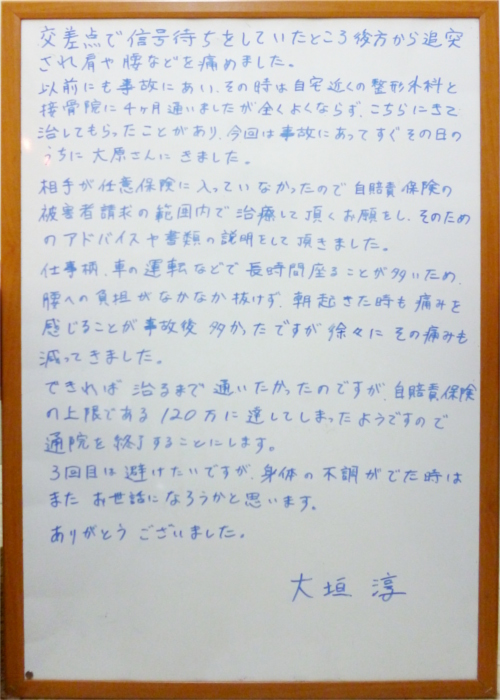 交差点で信号待ちをしていたところ後方から追突
され肩や腰などを痛めました。
以前にも事故にあい、その時は自宅近くの整形外科と
接骨院に4ヶ月通いましたが全くよくならず、こちらにきて
治してもらったことがあり、今回は事故にあってすぐその日の
うちに大原さんにきました。
相手が任意保険に入っていなかったので自賠責保険の
被害者請求の範囲内で治療して頂くお願をし、そのため
のアドバイスや書類の説明をして頂きました。
仕事柄、車の運転などで長時間座ることが多いため、
腰への負担がなかなか抜けず、朝起きた時も痛みを
感じることが事故後多かったですが徐々にその痛みも
減ってきました。
できれば治るまで通いたかったのですが、自賠責保険
の上限である120万に達してしまったようですので
通院を終了することにします。
3回目は避けたいですが、身体の不調がでた時は
またお世話になろうかと思います。
ありがとうございました。
大垣 淳